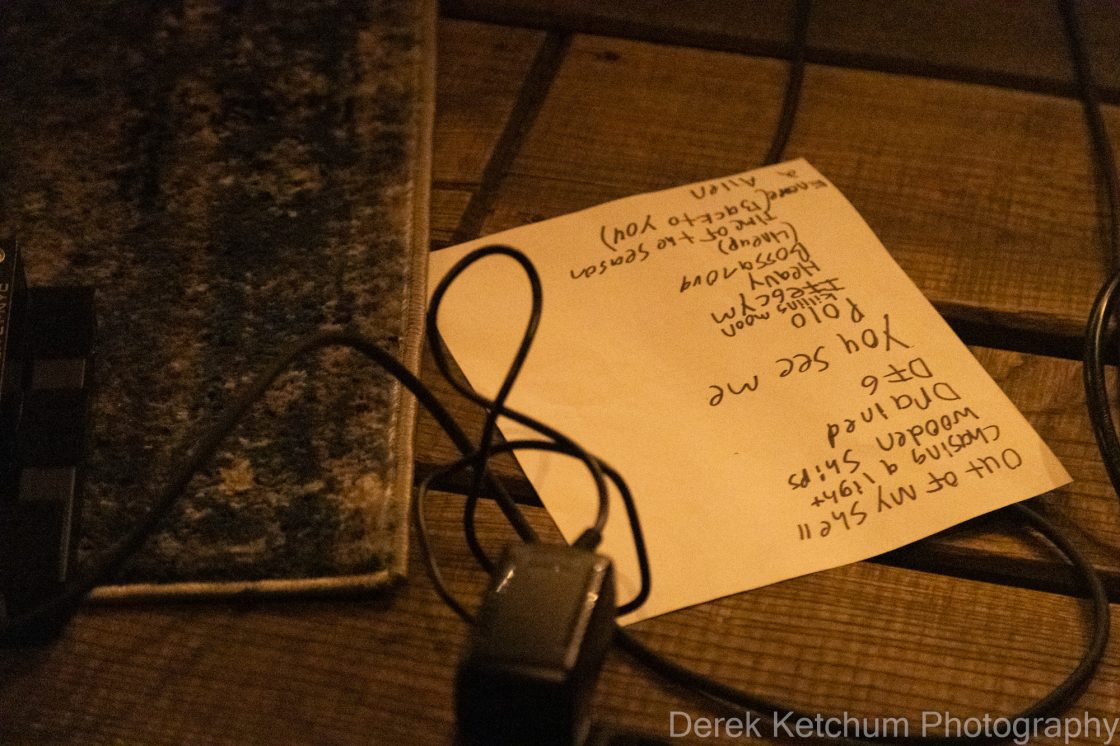 Out of my shell
Chasing a light
wooden ships
Drained
You see me
Polo
killing moon
Heavy
Bossanova
(Lineup)
Time of the season
(Back to you)
Allen
Derek Ketchum Photography